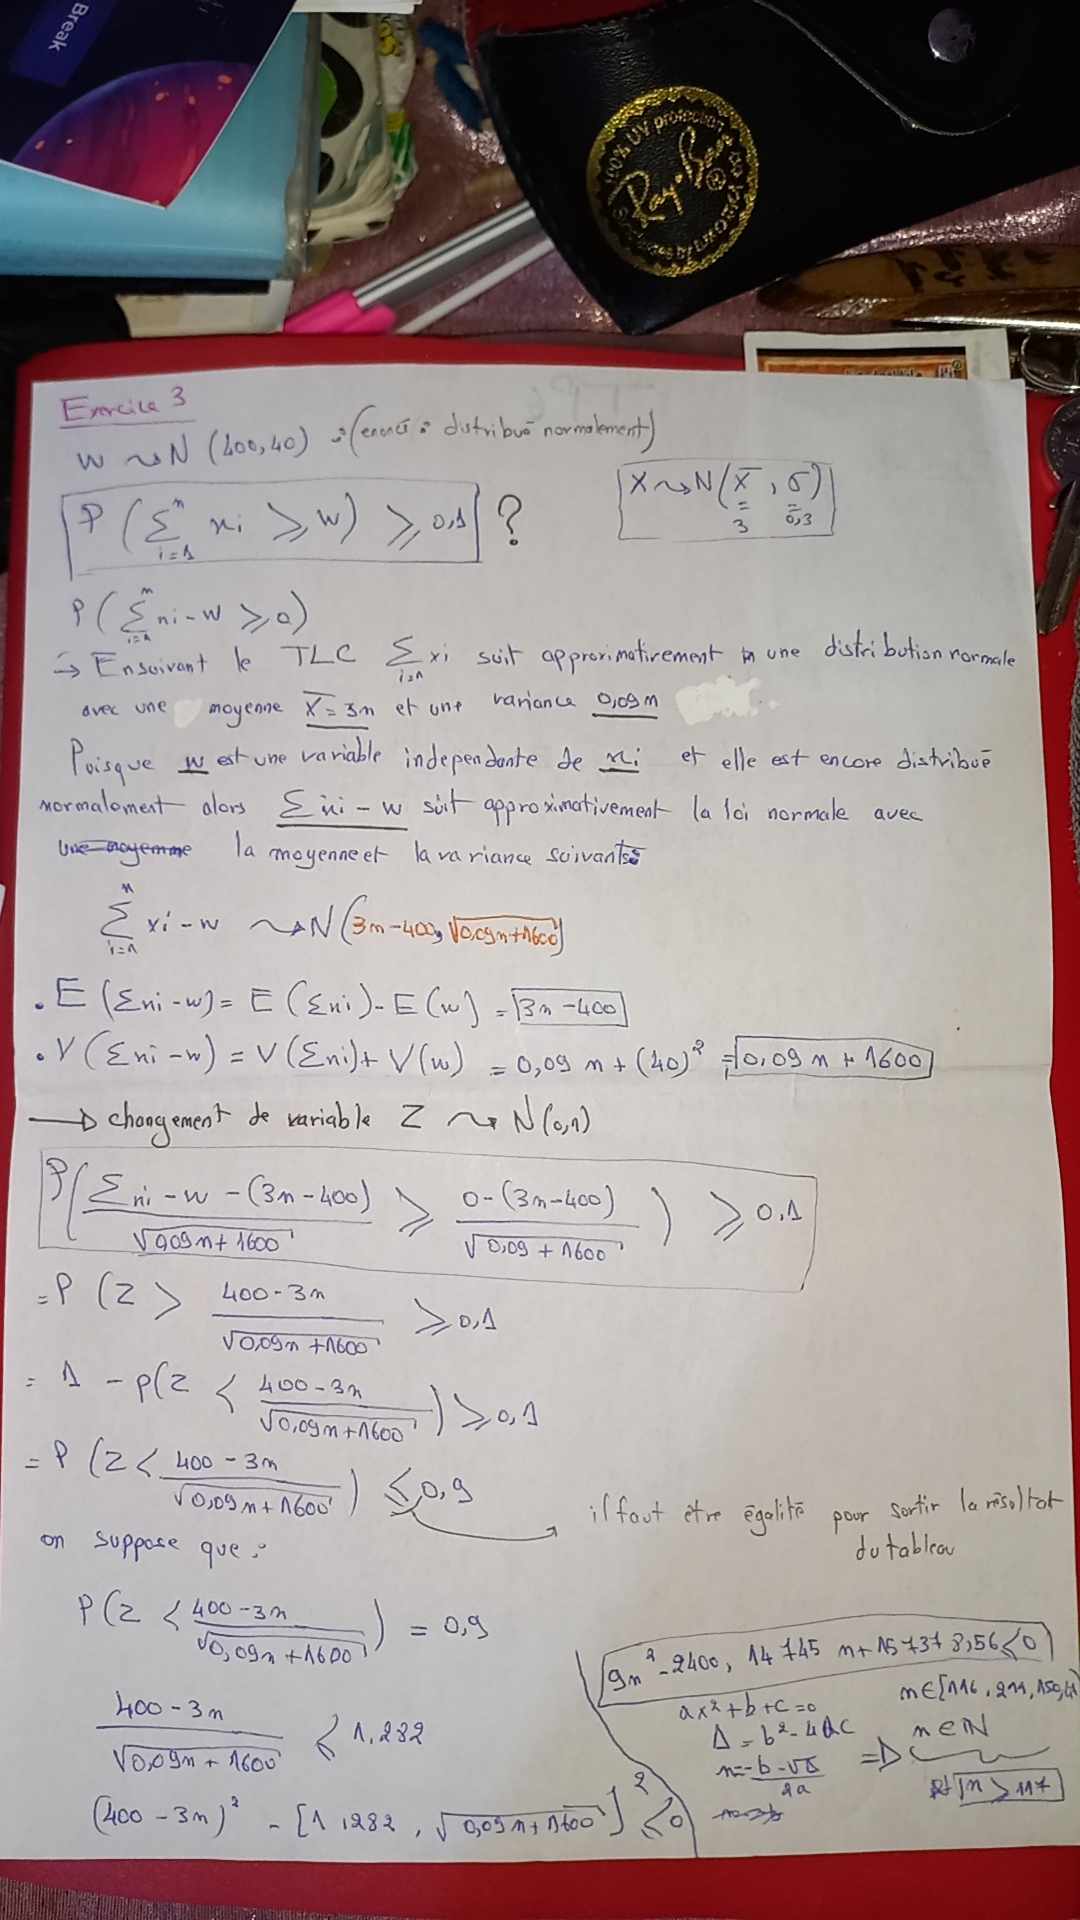 Break
100% UV protection
Ray-Ban
Exercice 3
W ~> N (400,40) :(énoncé : distribué normalement)
X ~> N(x̄, σ)
= =
3 0,3
P (∑ i=1 n xi ≥ W) ≥ 0,1 ?
P (∑ i=1 n xi - W ≥ 0)
→ En suivant le TLC ∑ i=1 xi suit approximativement une distribution normale
avec une moyenne X̄ = 3n et une variance 0,09n
Puisque W est une variable independante de xi et elle est encore distribué
normalement alors ∑ xi - w suit approximativement la loi normale avec
une moyenne la moyenne et la variance suivantes
∑ i=1 n xi - w ~> N(3n-400, √0,09n+1600)
. E (∑xi - w) = E (∑xi) - E(w) = 3n - 400
. V (∑xi - w) = V(∑xi) + V(w) = 0,09 n + (40)² = 0,09 n + 1600
→ changement de variable Z ~> N(0,1)
P( (∑xi - w - (3n-400)) / √0,09n+1600 ≥ (0-(3n-400)) / √0,09+1600 ) ≥ 0,1
= P (Z > (400-3n) / √0,09n+1600 ≥ 0,1
= 1 - p(Z < (400-3n) / √0,09n+1600 ) ≥ 0,1
= P (Z < (400-3n) / √0,09n+1600 ) ≤ 0,9
il faut être égalité pour sortir la résultat
du tableau
on suppose que :
P(Z < (400-3n) / √0,09n+1600 ) = 0,9
(400-3n) / √0,09n+1600 ≤ 1,282
(400-3n)² - [1,282 . √0,09n+1600]² ≤ 0
9n² - 2400,14745 n + 157378,56 ≤ 0
ax²+b+c=0
Δ = b²-4ac
n = (-b-√Δ) / 2a
n∈[116,211,150,
n∈ℕ
=> n ≥ 117